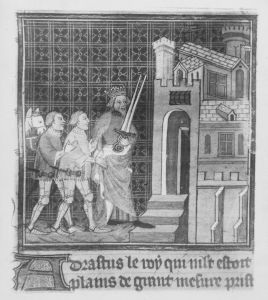 Adrastus le roy qui nist estoit
plains de grant mesure prist